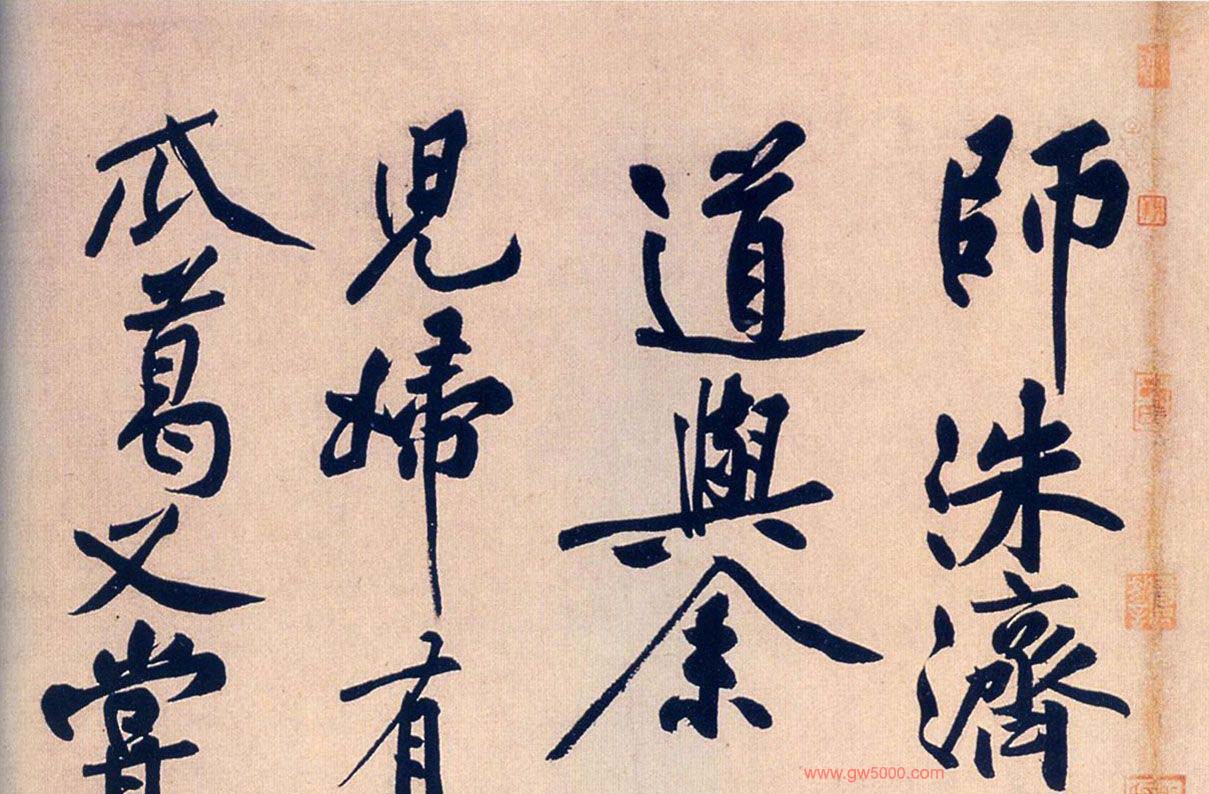 師洙濟
道與余
兒婦有
瓜葛又嘗
www.gw5000.com